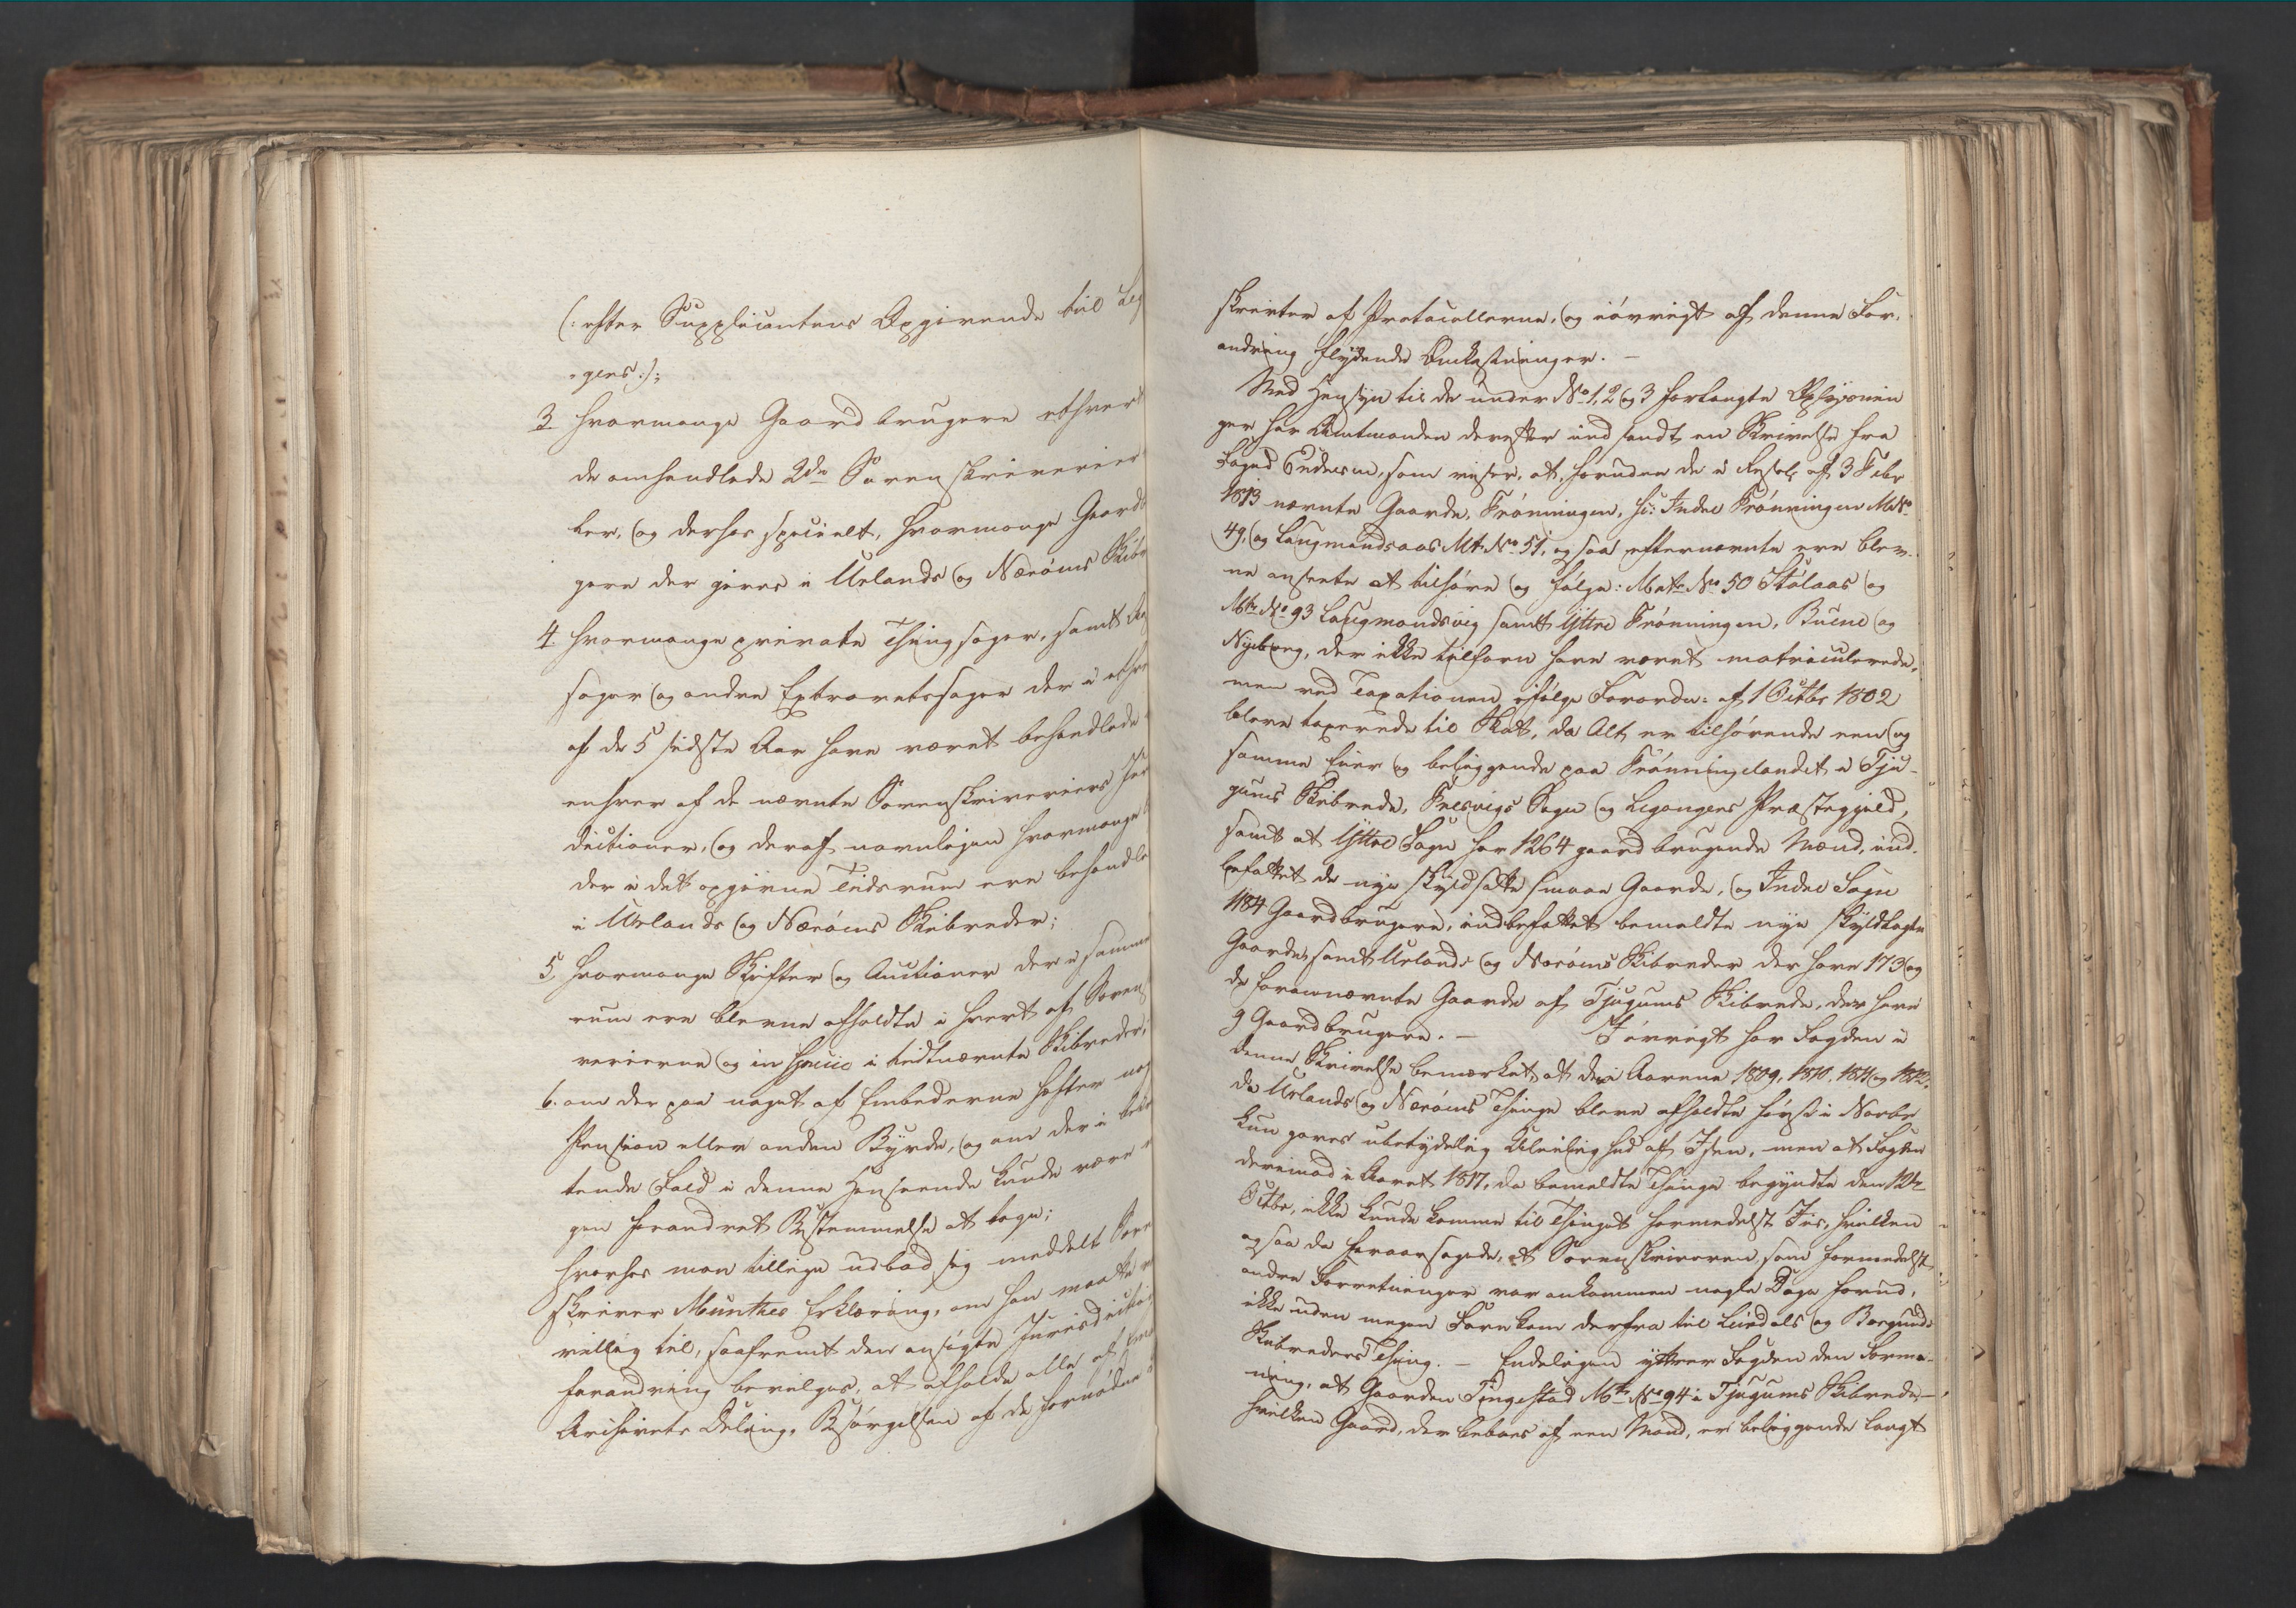 (: efter Supplicantens Opgivende til Leg
-gers :);
3 hvormange Gaardbrugere ethvert
de omhandlede 2de Sorenskriverier
ker, og derhos specielt, hvormange Gaard
gere der gives i Urlands og Nærøens Skibr
4 hvormange private Thingsager, samt
sager og andre Extraretssager der i ethve
af de 5 sidste Aar have været behandlede
enhver af de nævnte Sorenskriveriers Jur
dictioner, og deraf navnligen hvormange
der i det opgivne Tidsrum ere behandle
i Urlands og Nærøens Skibreder;
5, hvormange Skifter og Auctioner der i samme
rum ere blevne afholdte i hvert af Sorens
verierne og in specie i tidtnævnte Skibreder;
6. om der paa noget af Embederne hefter nog
Pension eller anden Byrde, og om der i bekr
tende Fald i denne Henseende kunde være
gen forandret Bestemmelse at tage;
hvorhos man tillige udbad sig meddelt Sore
skriver Munthes Erklæring, om han maatte v
villig til, saafremt den ansøgte Jurisdictio
forandring bevilges, at afholde alle af
Archivets Deling, Besørgelsen af de fornødne
skrivter af Protocollerne, og iøvrigt af denne For-
andring flydende Omkostninger. -
Med Hensyn til de under No 1, 2 og 3 forlangte Oplysnin
ger har Amtmanden derefter indsendt en Skrivelse fra
Foged , som viser, at, foruden de i Resol: af 3 Febr
1813 nævnte Gaarde, Frønningen, ɔ: Indre Frønningen M.No
49, og Laugmandsaas Mt. No 51, ogsaa efternævnte ere blev-
ne ansete at tilhøre og følge: Mat. No 50 Stølaas og
Mt. No 93 Laugmandsvig samt Yttre Frønningen, Buene og
Nybøeg, der ikke tilforn have været matriculerede,
men ved Taxationen ifølge Forordn: af 1 Octbr 1802
bleve taxerede til Skat, da Alt er tilhørende een og
samme Eier og beliggende paa Frønningelandet i Tju-
gums Skibrede, Fresvigs Sogn og Leganger Præstegjeld,
samt at Yttre Sogn har 1264 gaardbrugende Mænd, ind-
befattet de nye skyldsatte smaae Gaarde, og Indre Sogn
1184 Gaardbrugere, indbefattet bemeldte nye skyldlagte
Gaarde, samt Urlands og Nærøens Skibreder der have 173 og
de forannævnte Gaarde af Tjugums Skibrede, der have
9 Gaardbrugere. - Iøvrigt har Fogden i
denne Skrivelse bemærket, at der i Aarene 1809, 1810, 1811 og 1812,
da Urlands og Nærøens Thinge bleve afholdte først i Novbr
kun gaves ubetydelig Uleilighed af Isen, men at Fogden
derimod i Aaret 1817, da bemeldte Thinge begyndte den 12te
Octbr, ikke kunde komme til Thinget formedelst Iis, hvilken
ogsaa da foraarsagede, at Sorenskriveren, som formedelst
andre Forretninger var ankommen nogle Dage forud,
ikke uden megen Fare kom derfra til Lierdals og Borgunds
Skibreders Thing. - Endeligen yttrer Fogden den Forme-
ning, at Gaarden Tingestad Mt. No 94 i Tjugums Skibrede, -
hvilken Gaard, der beboes af een Mand, er beliggende langt